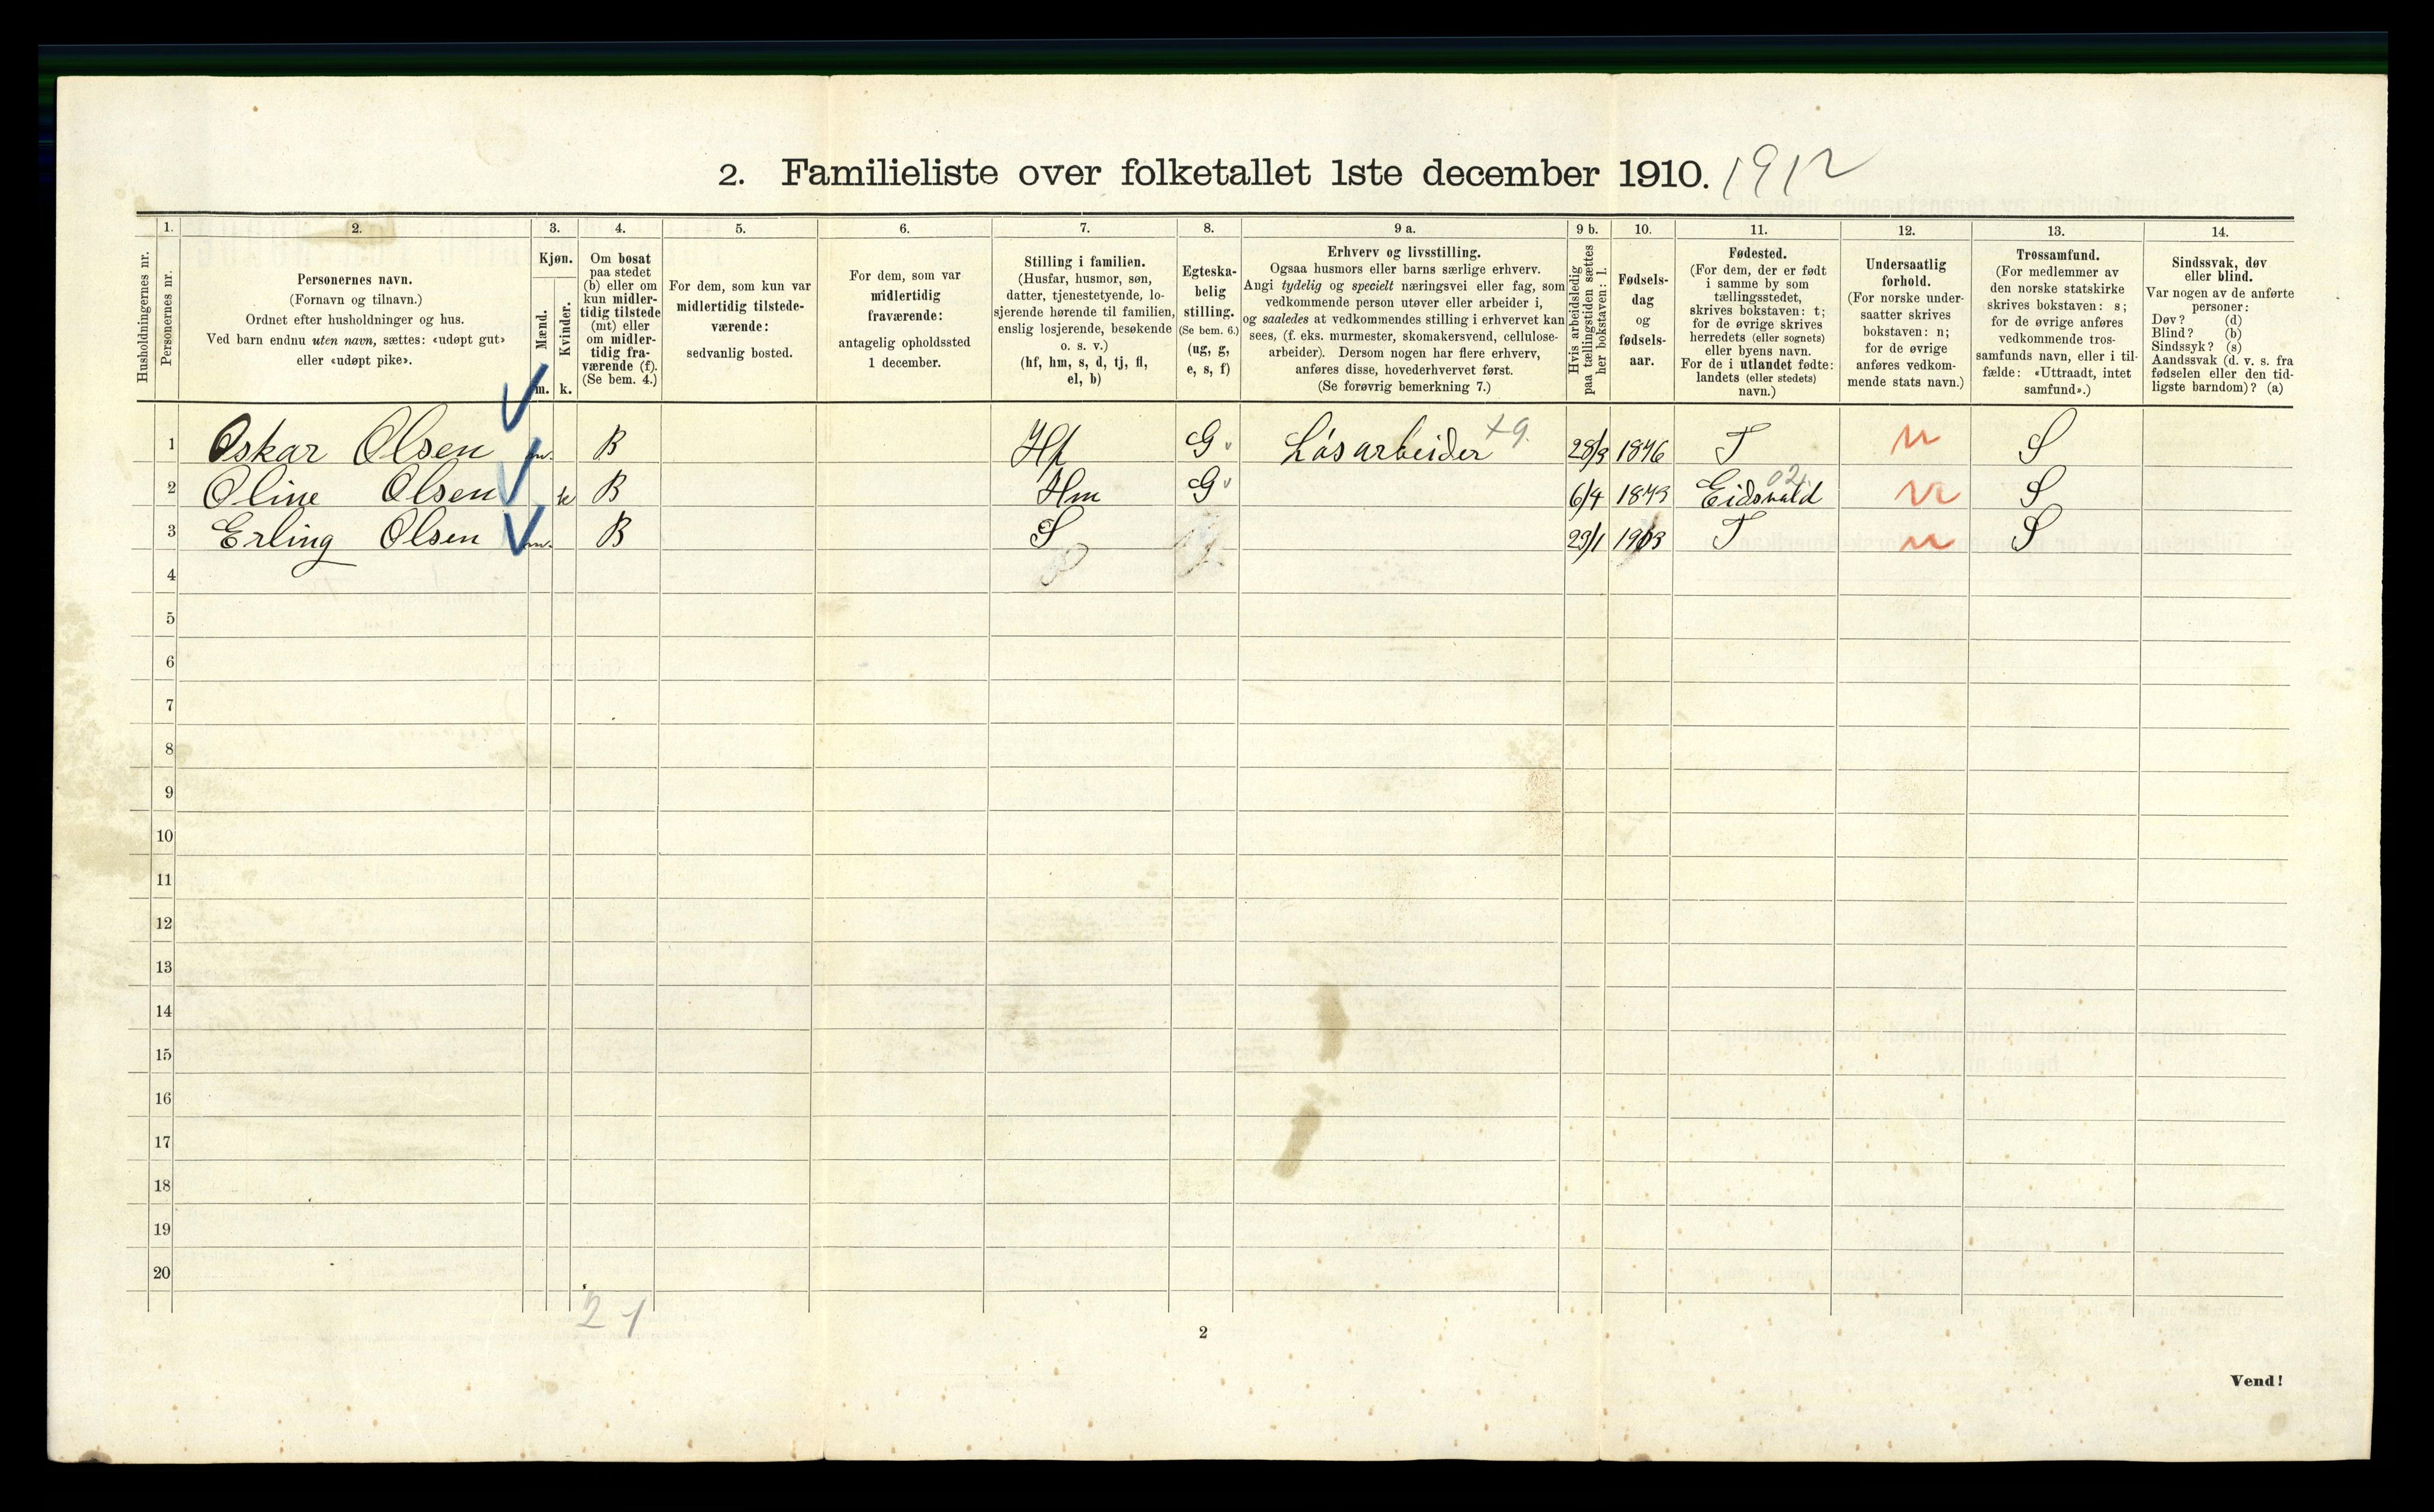 2. Familieliste over folketallet 1ste december 1910. 1912
Husholdningernes nr.
1.
Personernes nr.
2.
Personernes navn.
(Fornavn og tilnavn.)
Ordnet efter husholdninger og hus.
Ved barn endnu uten navn, sættes: «udøpt gut»
eller «udøpt pike».
3.
Kjøn.
Mænd.
m.
Kvinder.
k.
4.
Om bosat
paa stedet
(b) eller om
kun midler-
tidig tilstede
(mt) eller
om midler-
tidig fra-
værende (f).
(Se bem. 4.)
5.
For dem, som kun var
midlertidig tilstede-
værende:
sedvanlig bosted.
6.
For dem, som var
midlertidig
fraværende:
antagelig opholdssted
1 december.
7.
Stilling i familien.
(Husfar, husmor, søn,
datter, tjenestetyende, lo-
sjerende hørende til familien,
enslig losjerende, besøkende
o. s. v.)
(hf, hm, s, d, tj, fl,
el, b)
8.
Egteska-
belig
stilling.
(Se bem. 6.)
(ug, g,
e, s, f)
9 a.
Erhverv og livsstilling.
Ogsaa husmors eller barns særlige erhverv.
Angi tydelig og specielt næringsvei eller fag, som
vedkommende person utøver eller arbeider i,
og saaledes at vedkommendes stilling i erhvervet kan
sees, (f. eks. murmester, skomakersvend, cellulose-
arbeider). Dersom nogen har flere erhverv,
anføres disse, hovederhvervet først.
(Se forøvrig bemerkning 7.)
9 b.
Hvis arbeidsledig
paa tællingstiden sættes
her bokstaven: l.
10.
Fødsels-
dag
og
fødsels-
aar.
11.
Fødested.
(For dem, der er født
i samme by som
tællingsstedet,
skrives bokstaven: t;
for de øvrige skrives
herredets (eller sognets)
eller byens navn.
For de i utlandet fødte:
landets (eller stedets)
navn.)
12.
Undersaatlig
forhold.
(For norske under-
saatter skrives
bokstaven: n;
for de øvrige
anføres vedkom-
mende stats navn.)
13.
Trossamfund.
(For medlemmer av
den norske statskirke
skrives bokstaven: s;
for de øvrige anføres
vedkommende tros-
samfunds navn, eller i til-
fælde: «Uttraadt, intet
samfund».)
14.
Sindssvak, døv
eller blind.
Var nogen av de anførte
personer:
Døv? (d)
Blind? (b)
Sindssyk? (s)
Aandssvak (d. v. s. fra
fødselen eller den tid-
ligste barndom)? (a)
1 Oskar Olsen m. B Hf G Løsarbeider 28/3 1876 T n S
2 Oline Olsen k B Hm G 6/4 1879 Eidsvold 02. n S
3 Erling Olsen m. B S 29/1 1903 T n S
4
5
6
7
8
9
10
11
12
13
14
15
16
17
18
19
20
2 1
2
Vend!